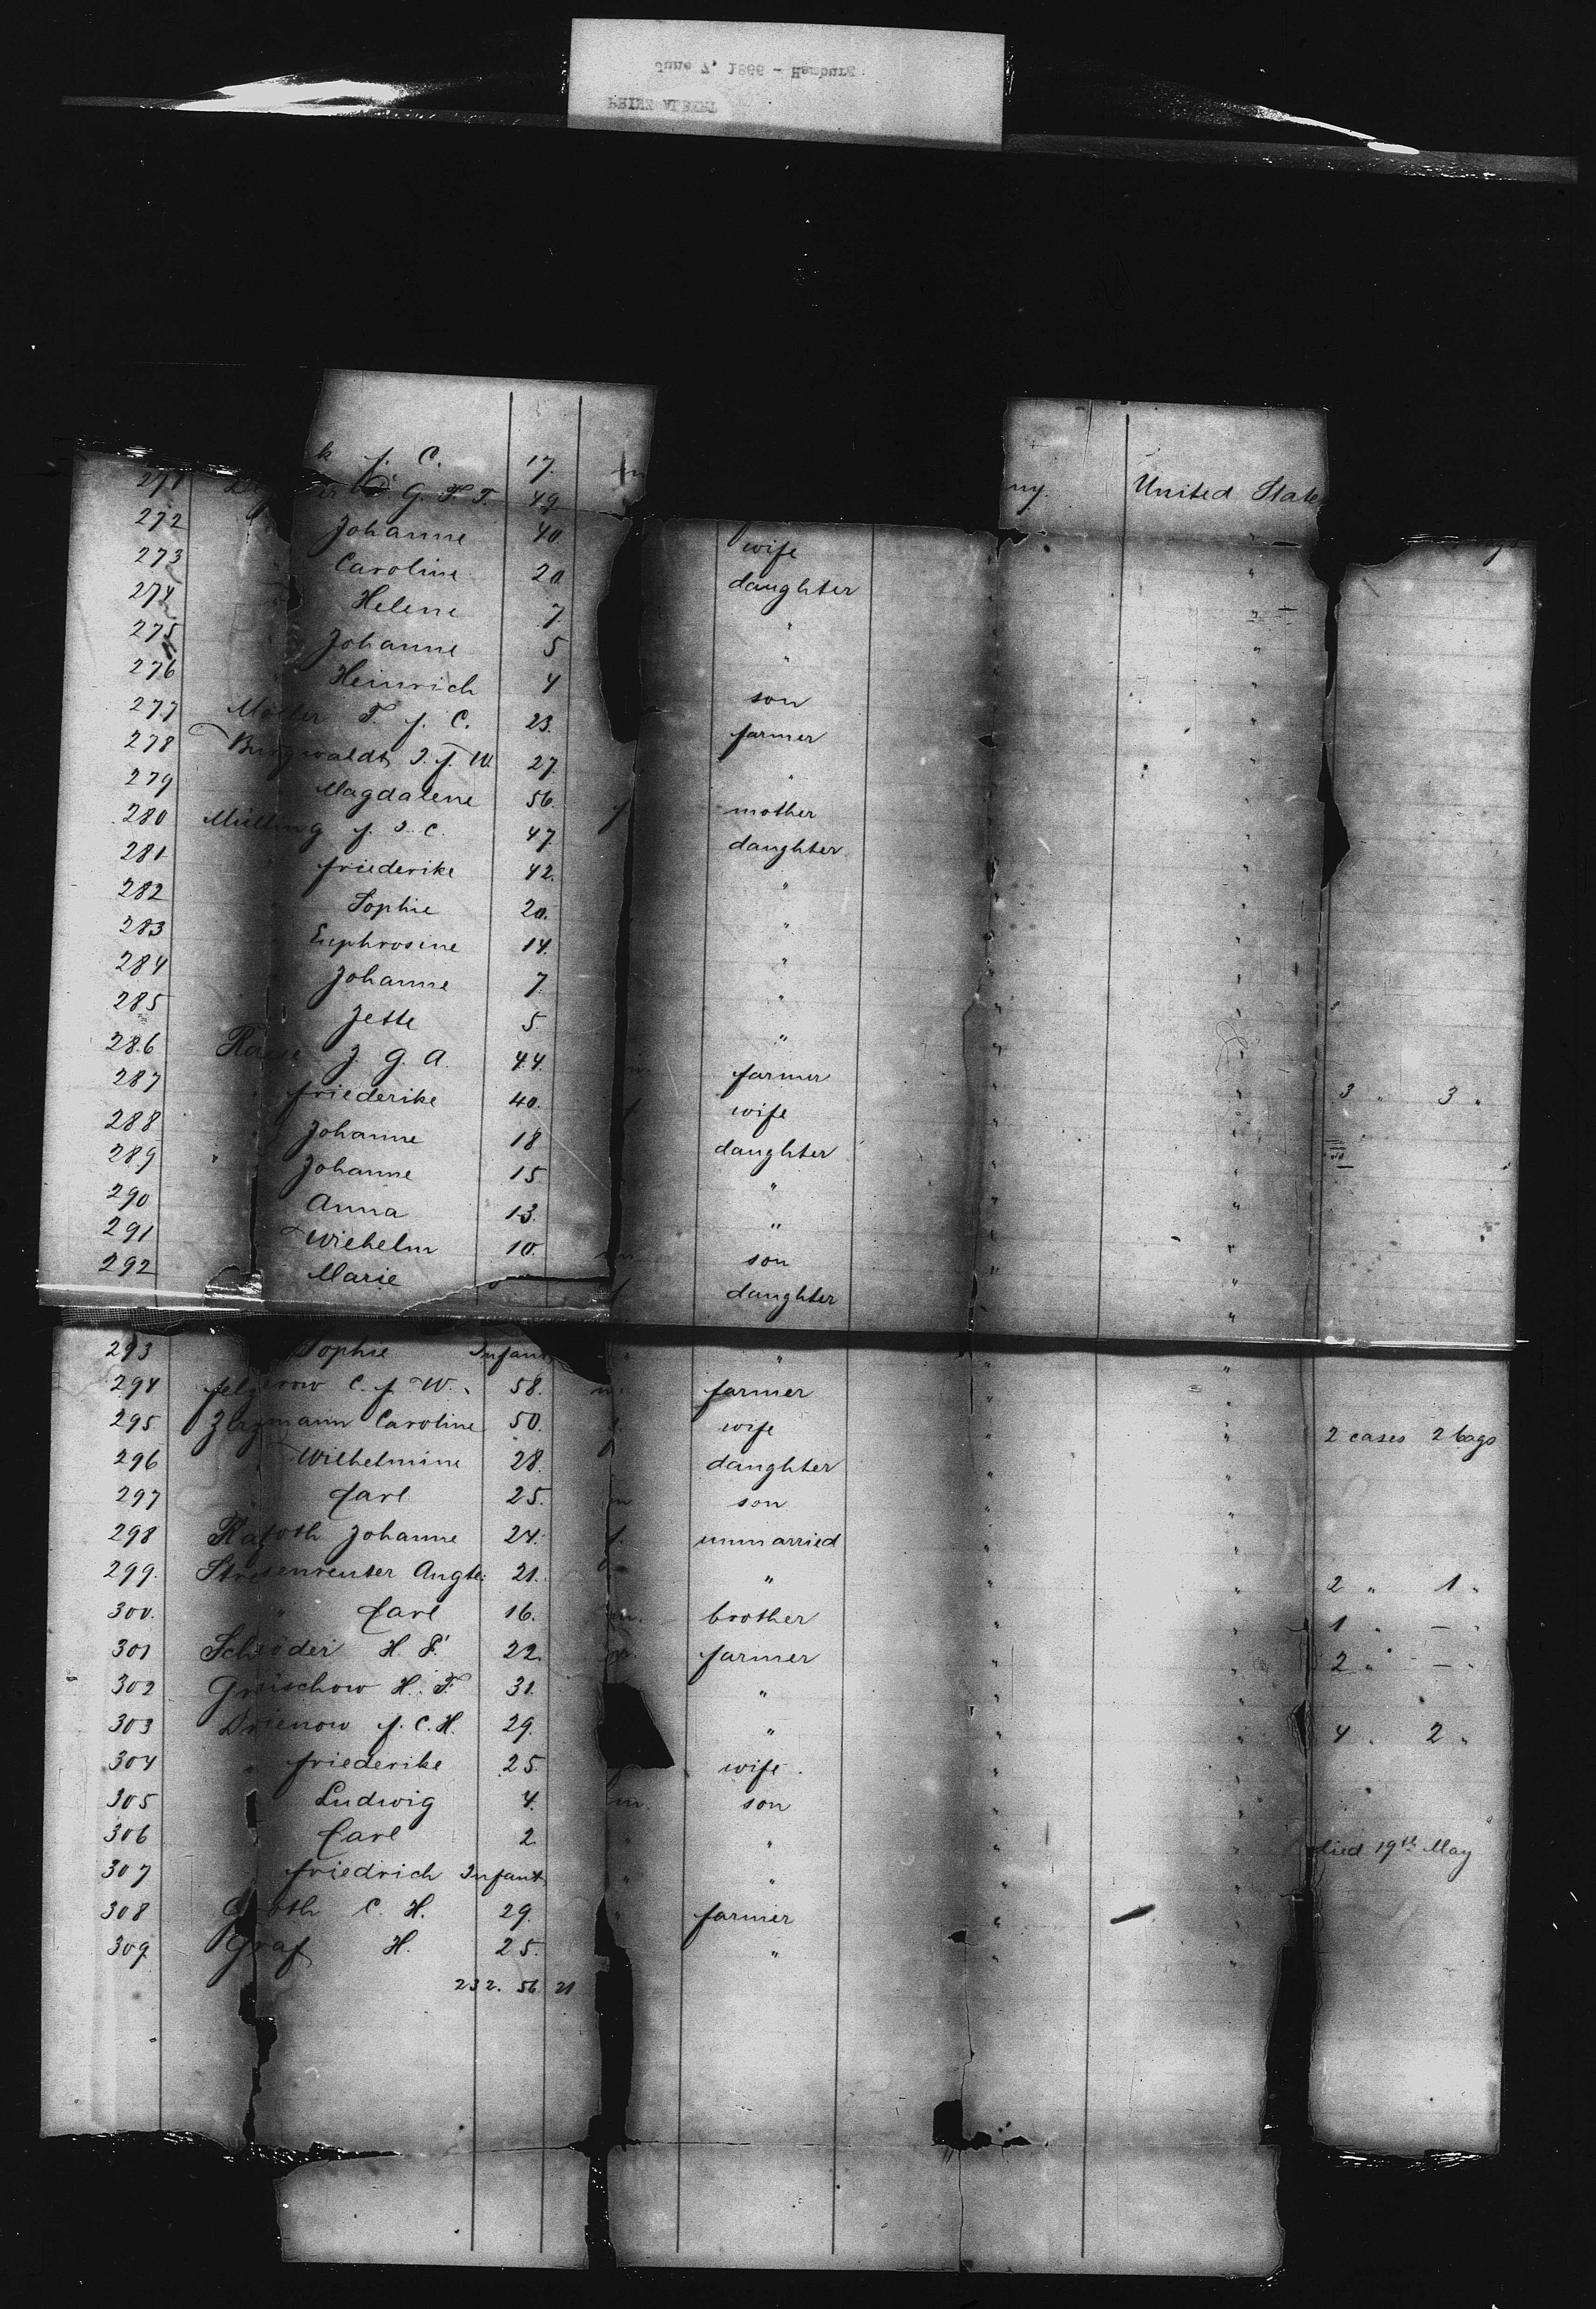 June 7, 1866 - Hamburg
PRINZ ALBERT
k f. C. 17. m
ny. United State
271 er G. F. T. 49
272 Johanne 40 wife "
273 Caroline 20 daughter " "
274 Helene 7 " " "
275 Johanne 5 " " "
276 Heinrich 4 son " "
277 Möller T. f. C. 23. farmer " "
278 Burgwaldt J. f. W. 27. " " "
279 Magdalene 56. f mother " "
280 Milling f. J. C. 47. daughter " "
281 friederike 42. " " "
282 Sophie 20. " " "
283 Euphrosine 14. " " "
284 Johanne 7. " " "
285 Jette 5 " " "
286 J. G. A. 44. farmer " "
287 friederike 40. f wife " " 3 " 3 "
288 Johanne 18 daughter " "
289 " Johanne 15 " " "
290 Anna 13. " " "
291 Wilhelm 10. m son " "
292 Marie f daughter "
293 Sophie Infant " " " "
294 C. f W. 58. m. farmer " "
295 Caroline 50. f. wife " " 2 cases 2 bags
296 Wilhelmine 28. daughter " "
297 Carl 25. m son " "
298 Johanne 24. f. unmarried " "
299. Stresenreuter Augte: 21. " " " 2 " 1 "
300. " Carl 16. m. brother " " 1 " — "
301 Schröder H. F. 22. m. farmer " " 2 " — "
302 Grischow H. F. 31. " " "
303 Drienow f. C. H. 29. " " " 4 " 2 "
304 " friederike 25. f wife. " "
305 Ludwig 4. m. son " "
306 Carl 2 " " " " died 19th May
307 friedrich Infant. " " " "
308 Groth C. H. 29. " farmer " "
309 Graf H. 25. " " "
232. 56 21